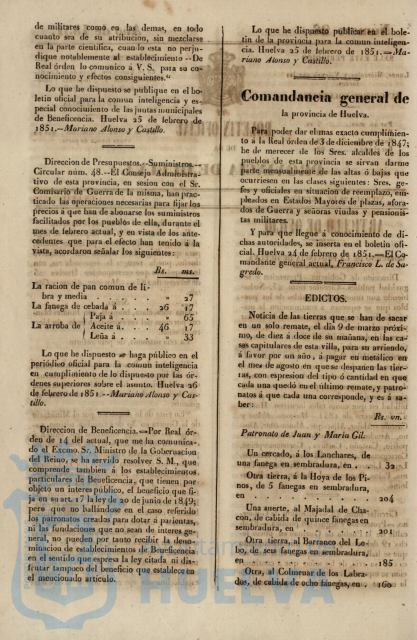 de militares como en las demas, en todo
cuanto sea de su atribucion, sin mezclarse
en la parte científica, cuando esta no perju-
dique notablemente al establecimiento.--De
Real órden lo comunico á V. S. para su co-
nocimiento y efectos consiguientes."
Lo que he dispuesto se publique en el bo-
letin oficial para la comun inteligencia y es-
pecial conocimiento de las juntas municipales
de Beneficencia. Huelva 25 de febrero de
1851.—Mariano Alonso y Castillo.
Direccion de Presupuestos.--Suministros.--
Circular núm. 48.—El Consejo Administra-
tivo de esta provincia, en sesion con el Sr.
Comisario de Guerra de la misma, han prac-
ticado las operaciones necesarias para fijar los
precios á que han de abonarse los suministros
facilitados por los pueblos de ella, durante el
mes de febrero actual, y en vista de los ante-
cedentes que para el efecto han tenido á la
vista, acordaron señalar los siguientes:
Rs. ms.
La racion de pan comun de li-
bra y media . . . . . „ 27
La fanega de cebada á . . . 26 17
Paja á . . . „ 65
La arroba de Aceite á. . 46 17
Leña á . . „ 33
Lo que he dispuesto se haga público en el
periódico oficial para la comun inteligencia
en cumplimiento de lo dispuesto por las ór-
denes superiores sobre el asunto. Huelva 26
de febrero de 1851.-Mariano Alonso y Cas-
tillo.
Direccion de Beneficencia.—Por Real ór-
den de 14 del actual, que me ha comunica-
do el Excmo. Sr. Ministro de la Gobernacion
del Reino, se ha servido resolver S. M., que
comprende tambien á los establecimientos
particulares de Beneficencia, que tienen por
objeto un interes público, el beneficio que fi-
ja en su art. 17 la ley de 20 de junio de 1849;
pero que no hallándose en el caso referido
los patronatos creados para dotar á parientas,
ni las fundaciones que no sean de interes ge-
neral, no pueden por tanto recibir la deno-
minacion de establecimientos de Beneficencia
en el sentido que espresa la ley citada ni dis-
frutar tampoco del beneficio que establece en
el mencionado artículo.
Lo que he dispuesto publicar en el bole-
tin de la provincia para la comun inteligen-
cia. Huelva 25 de febrero de 1851.—Ma-
riano Alonso y Castillo.
Comandancia general de
la provincia de Huelva.
Para poder dar el mas exacto cumplimien-
to á la Real órden de 3 de diciembre de 1847;
he de merecer de los Sres. alcaldes de los
pueblos de esta provincia se sirvan darme
parte mensualmente de las altas ó bajas que
ocurriesen en las clases siguientes: Sres. ge-
fes y oficiales en situacion de reemplazo, em-
pleados en Estados Mayores de plazas, afora-
dos de Guerra y señoras viudas y pensionis-
tas militares.
Y para que llegue á conocimiento de di-
chas autoridades, se inserta en el boletin ofi-
cial. Huelva 24 de febrero de 1851.—El Co-
mandante general actual, Francisco L. de Sa-
gredo.
EDICTOS.
Noticia de las tierras que se han de sacar
en un solo remate, el dia 9 de marzo próxi-
mo, de diez á doce de su mañana, en las ca-
sas capitulares de esta villa, para su arriendo,
á favor por un año, á pagar en metálico en
el mes de agosto en que se despajan las tier-
ras, con espresion del tipo ó cantidad en que
cada una quedó en el último remate, y patro-
natos á que cada una corresponde, y es á sa-
ber:
Rs. vn.
Patronato de Juan y Maria Gil.
Un cercado, á los Lanchares, de
una fanega en sembradura, en . 32
Otra tierra, á la Hoya de los Pi-
nos, de 5 fanegas en sembradura,
en . . . . . . . . 204
Una suerte, al Majadal de Cha-
con, de cabida de quince fanegas en
sembradura, en . . . . . 201
Otra tierra, al Barranco del Lo-
bo, de seis fanegas en sembradura,
en . . . . . . . . 185
Otra, al Colmenar de los Labra-
dos, de cabida de ocho fanegas, en . 160
HUELVA